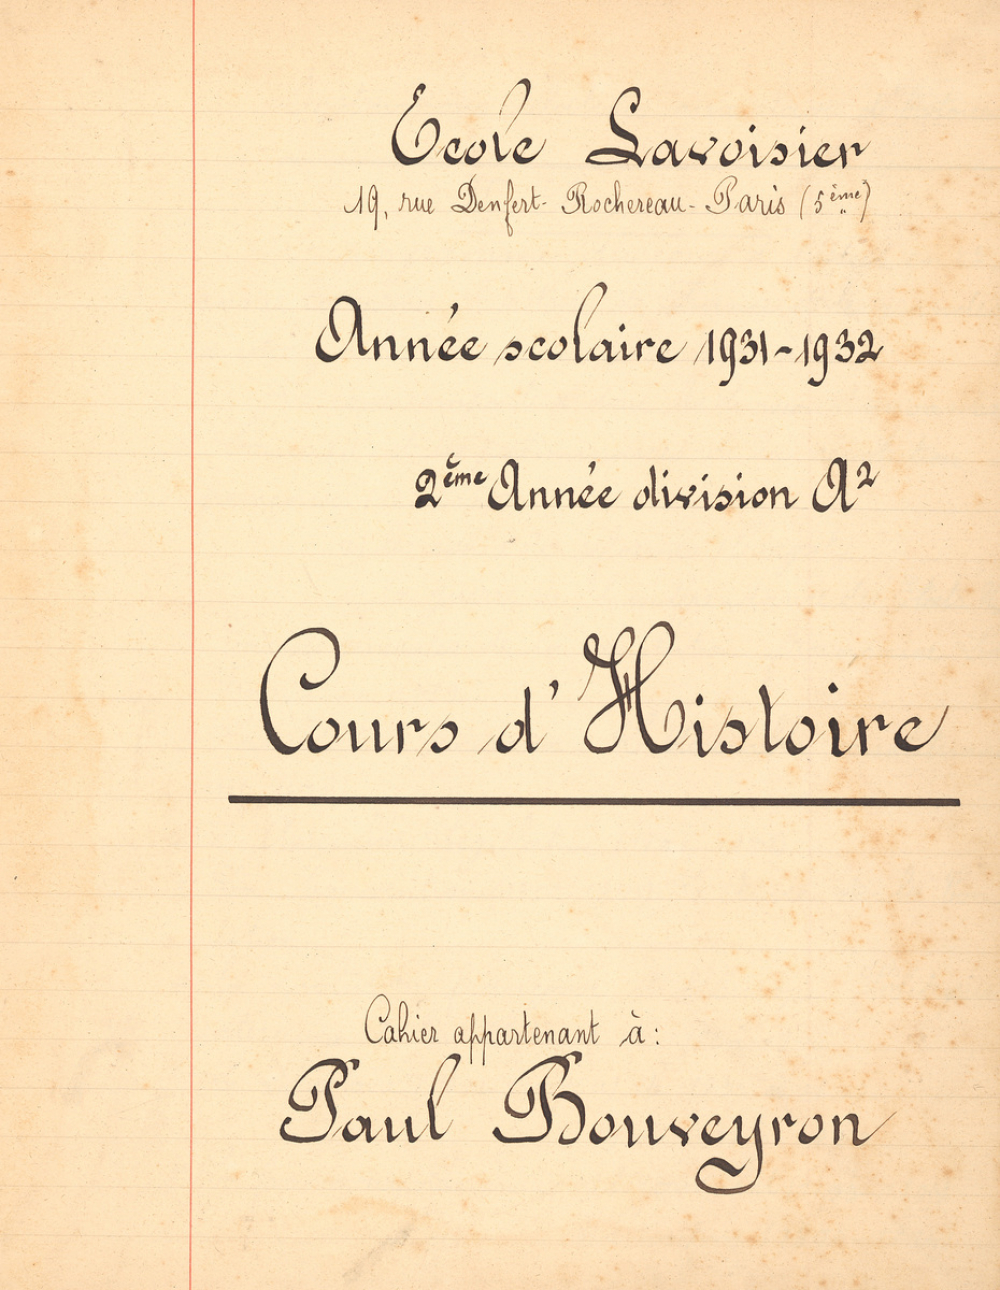 Ecole Lavoisier
19, rue Denfert-Rochereau-Paris (5ème)
Année scolaire 1931-1932
2ème Année division A2
Cours d'Histoire
Cahier appartenant à :
Paul Bouveyron